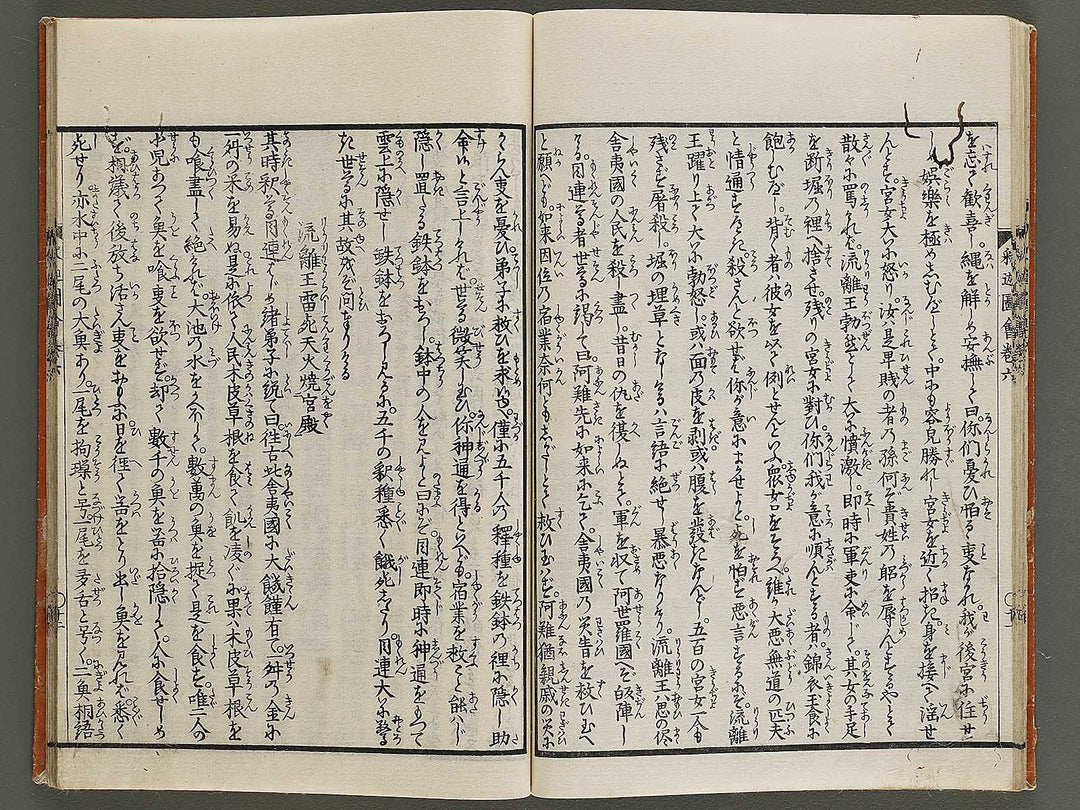 を忘て歓喜し縄を解しめ安撫して曰你們憂ひ怕るゝ事なかれ我が後宮に住せ
しめ娯樂を極めしむべしとて中にも容皃勝れし宮女を近く招き身を接へて淫せ
んとす宮女大いに怒り汝は是早賎の者の孫何ぞ貴姓の躬を辱んとするやとて
散々に罵りれば流離王勃然として大に憤激し即時に軍吏に命じて其女の手足
を断堀の裡へ捨させ残りの宮女に對ひ你們我が意に順んとする者は錦衣玉食に
飽しむべし背く者は彼女を以て例とせんといふ衆女口をそろへ誰か大悪無道の匹夫
と情通をなさん殺さんと欲せば你が意にまかせよとて死を怕ず悪言するにぞ流離
王躍り上て大いに勃怒し或は面の皮を剥或は腹を裂なんどし五百の宮女一人も
残さず屠殺し堀の埋草となしけるは言語に絶せし暴悪なりけり流離王は思の侭
舎夷國の人民を殺し盡し昔日の仇を復しぬとて軍を収て阿世羅國へぞ皈陣し
ける目連尊者世尊に謁て曰阿難先に如来に乞て舎夷國の災害を救ひ玉へ
と願へども如来因位の宿業奈何ともしがたしとて救ひ玉はず阿難猶親戚の災に
かゝらん事を憂ひ弟子に救ひを求いへ僅に五千人の釋種を鉄鉢の裡に隠し助
命いと言上しければ世尊微笑し玉ひ你神通を得といへども宿業を救こと能はじ
隠し置しる鉄鉢をおろし鉢中の人を見よと曰にぞ目連即時に神通をもつて
雲上に隠せし鉄鉢をおろし見るに五千の釈種悉く餓死しけり目連大いに驚
き世尊に其故をぞ問たりける
流離王雷死天火燒宮殿
其時釈尊目連はじめ諸弟子に説て曰徃古此舎夷國に大饑饉有て一舛の金に
一舛の米を易ぬ是に依て人民木皮草根を食て飢を凌ぐに果は木皮草根を
も喰盡して絶ければ大池の水をかへほして數萬の魚を捉て是を食す唯二人の
小児あつて魚を喰事を欲せず却て數千の魚を岩に拾隠して人に食せしめ
ず饑饉て後放ち活さん事をやすに日を徑て岩をとり出し魚を見れば悉く
死せり亦水中に二尾の大魚あり一尾を拘璅と号一尾を多舌と号く二魚相語
釈迦圖會巻六